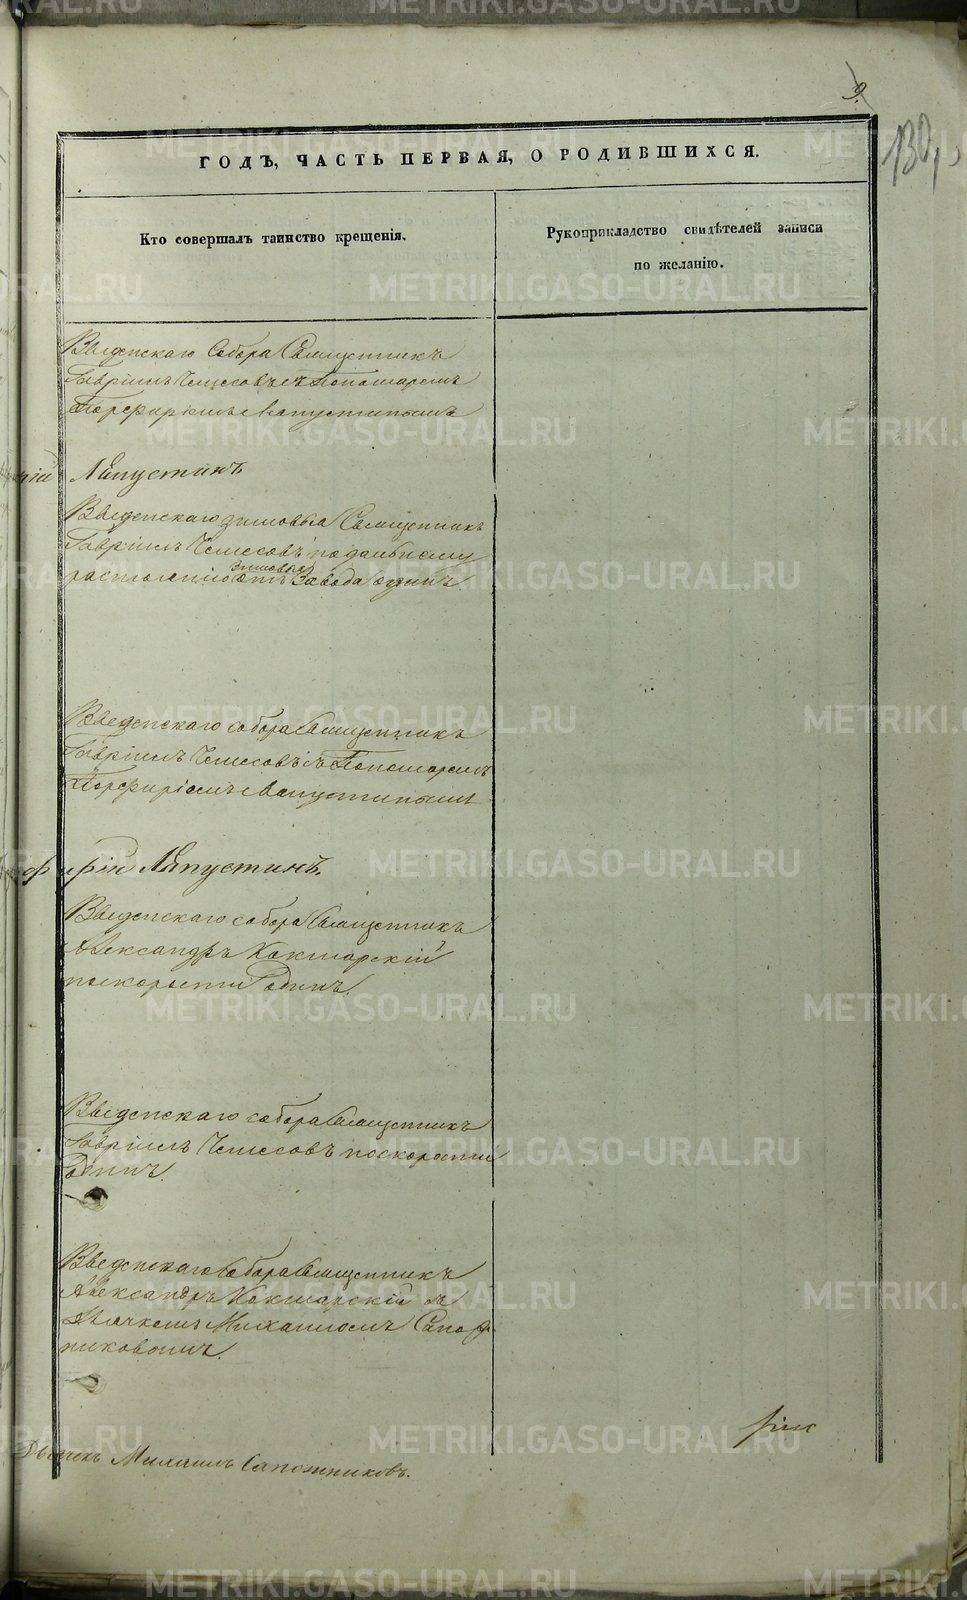 9
130
ГОДЪ, ЧАСТЬ ПЕРВАЯ, О РОДИВШИХСЯ.
Кто совершалъ таинство крещенія.
Рукоприкладство свидѣтелей записи
по желанію.
Введенскаго Собора Священникъ
Гавріилъ Чемесовъ съ Пономаремъ
Порфиріемъ Ляпустинымъ
Ляпустинъ
Введенскаго Священникъ
Гавріилъ Чемесовъ по дальному
разстоянію отъ Завода одинъ.
Введенскаго собора Священникъ
Гавріилъ Чемесовъ съ Пономаремъ
Порфиріемъ Ляпустинымъ
фирій Ляпустинъ.
Введенскаго собора Священникъ
Александръ Кокшарскій
поскорости одинъ.
Введенскаго собора Священникъ
Гавріилъ Чемесовъ поскорости
одинъ.
Введенскаго Собора Священникъ
Александръ Кокшарскій съ
Дьячкомъ Михаиломъ Сапож
никовымъ.
Дьячекъ Михаилъ Сапожниковъ.
METRIKI.GASO-URAL.RU